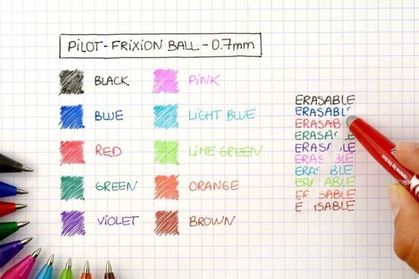 PILOT-FRIXION BALL-0.7mm
BLACK
PINK
BLUE
LIGHT BLUE
RED
LIME GREEN
GREEN
ORANGE
VIOLET
BROWN
ERASABLE
ERASABL
ERASAB
ERASA
ERASA LE
ERAS BLE
ERAS BLE
ERA ABLE
ER SABLE
E ISABLE